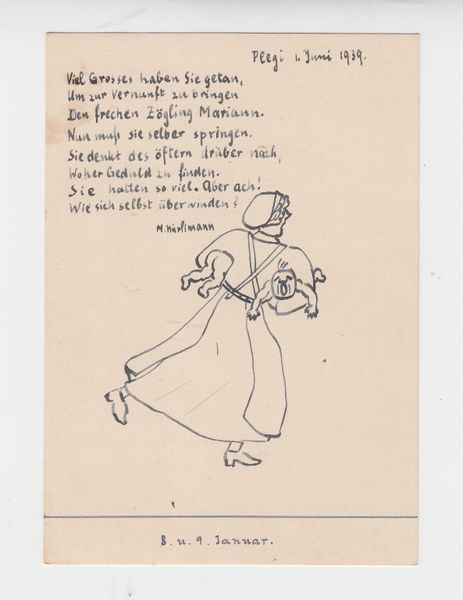 Pleegi 1. Juni 1939.
Viel Grosses haben Sie getan,
Um zur Vernunft zu bringen
Den frechen Zögling Mariann.
Nun muß sie selber springen.
Sie denkt des öftern drüber nach,
Woher Geduld zu finden.
Sie hatten so viel. Aber ach!
Wie sich selbst überwinden?
M. Hürlimann
8. u. 9. Januar.